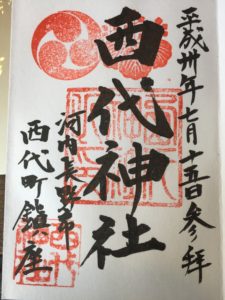 平成卅年七月十五日参拝
西代神社
河内長野市
西代町鎮座